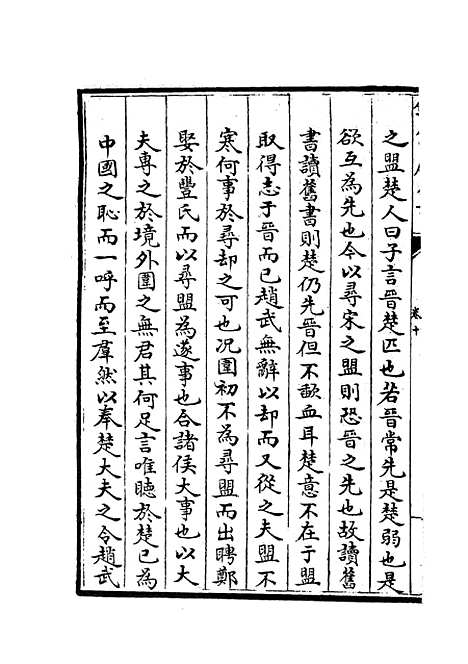 之盟楚人曰子言晉楚匹也若晉常先是楚弱也是
欲互為先也今以尋宋之盟則恐晉之先也故讀舊
書讀舊書則楚仍先晉但不歃血耳楚意不在于盟
取得志于晉而已趙武無辭以却而又從之夫盟不
寒何事於尋却之可也况圍初不為尋盟而出聘鄭
娶於豐氏而以尋盟為遂事也合諸侯大事也以大
夫專之於境外圍之無君其何足言唯聴於楚已為
中國之恥而一呼而至羣然以奉楚大夫之令趙武
卷十